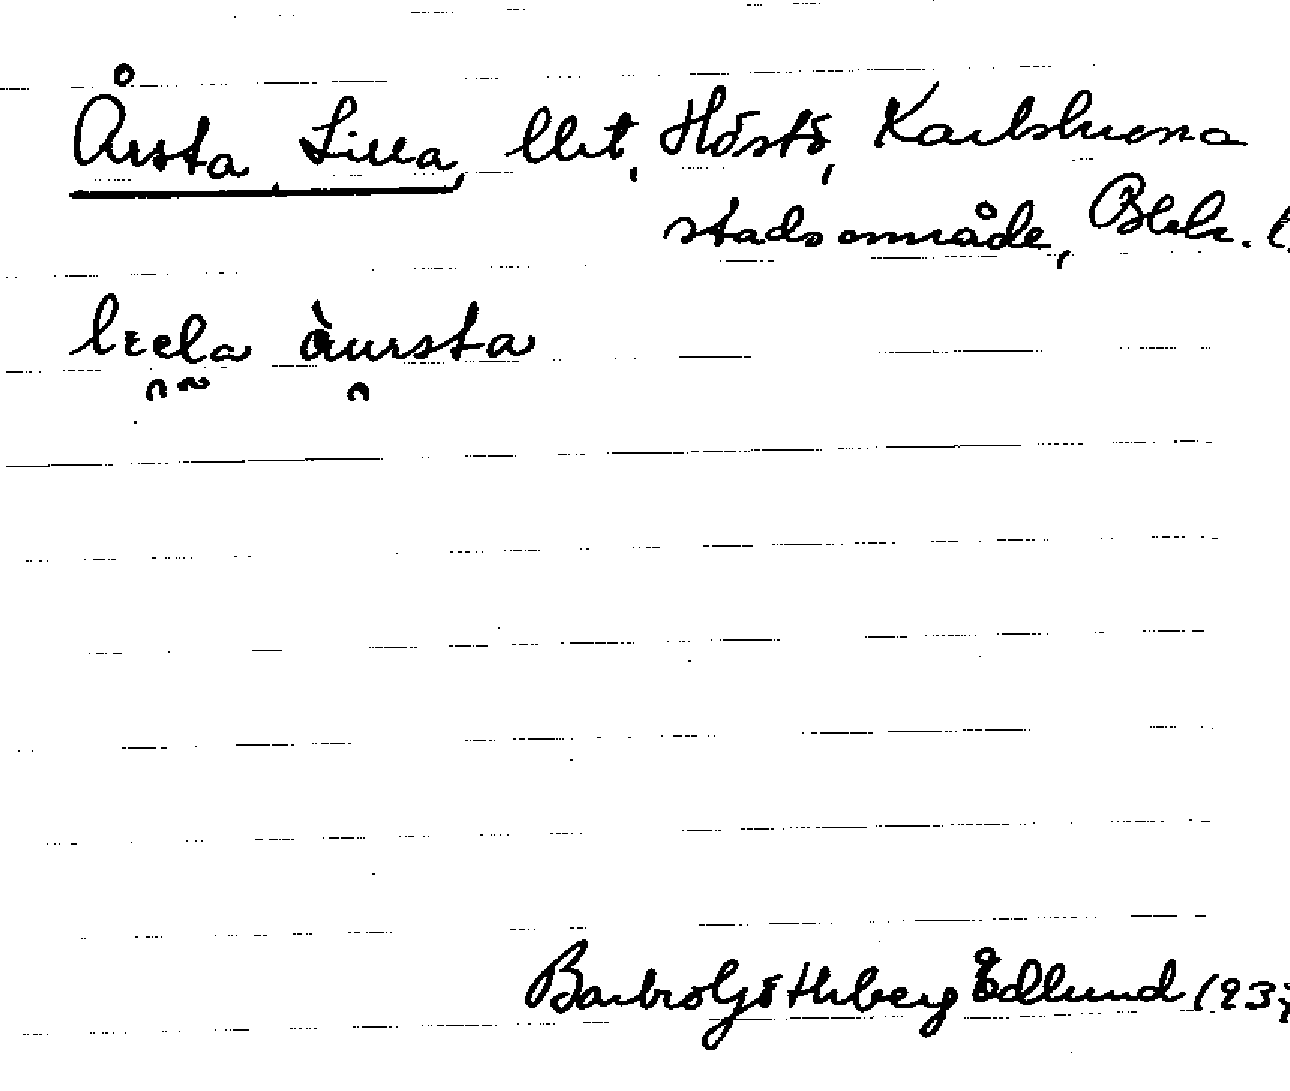 Årsta, Lilla, lht, Hästö, Karlskrona
stadsområde, Blek. l.
lɪela àursta
Barbro Götherberg Edlund 193